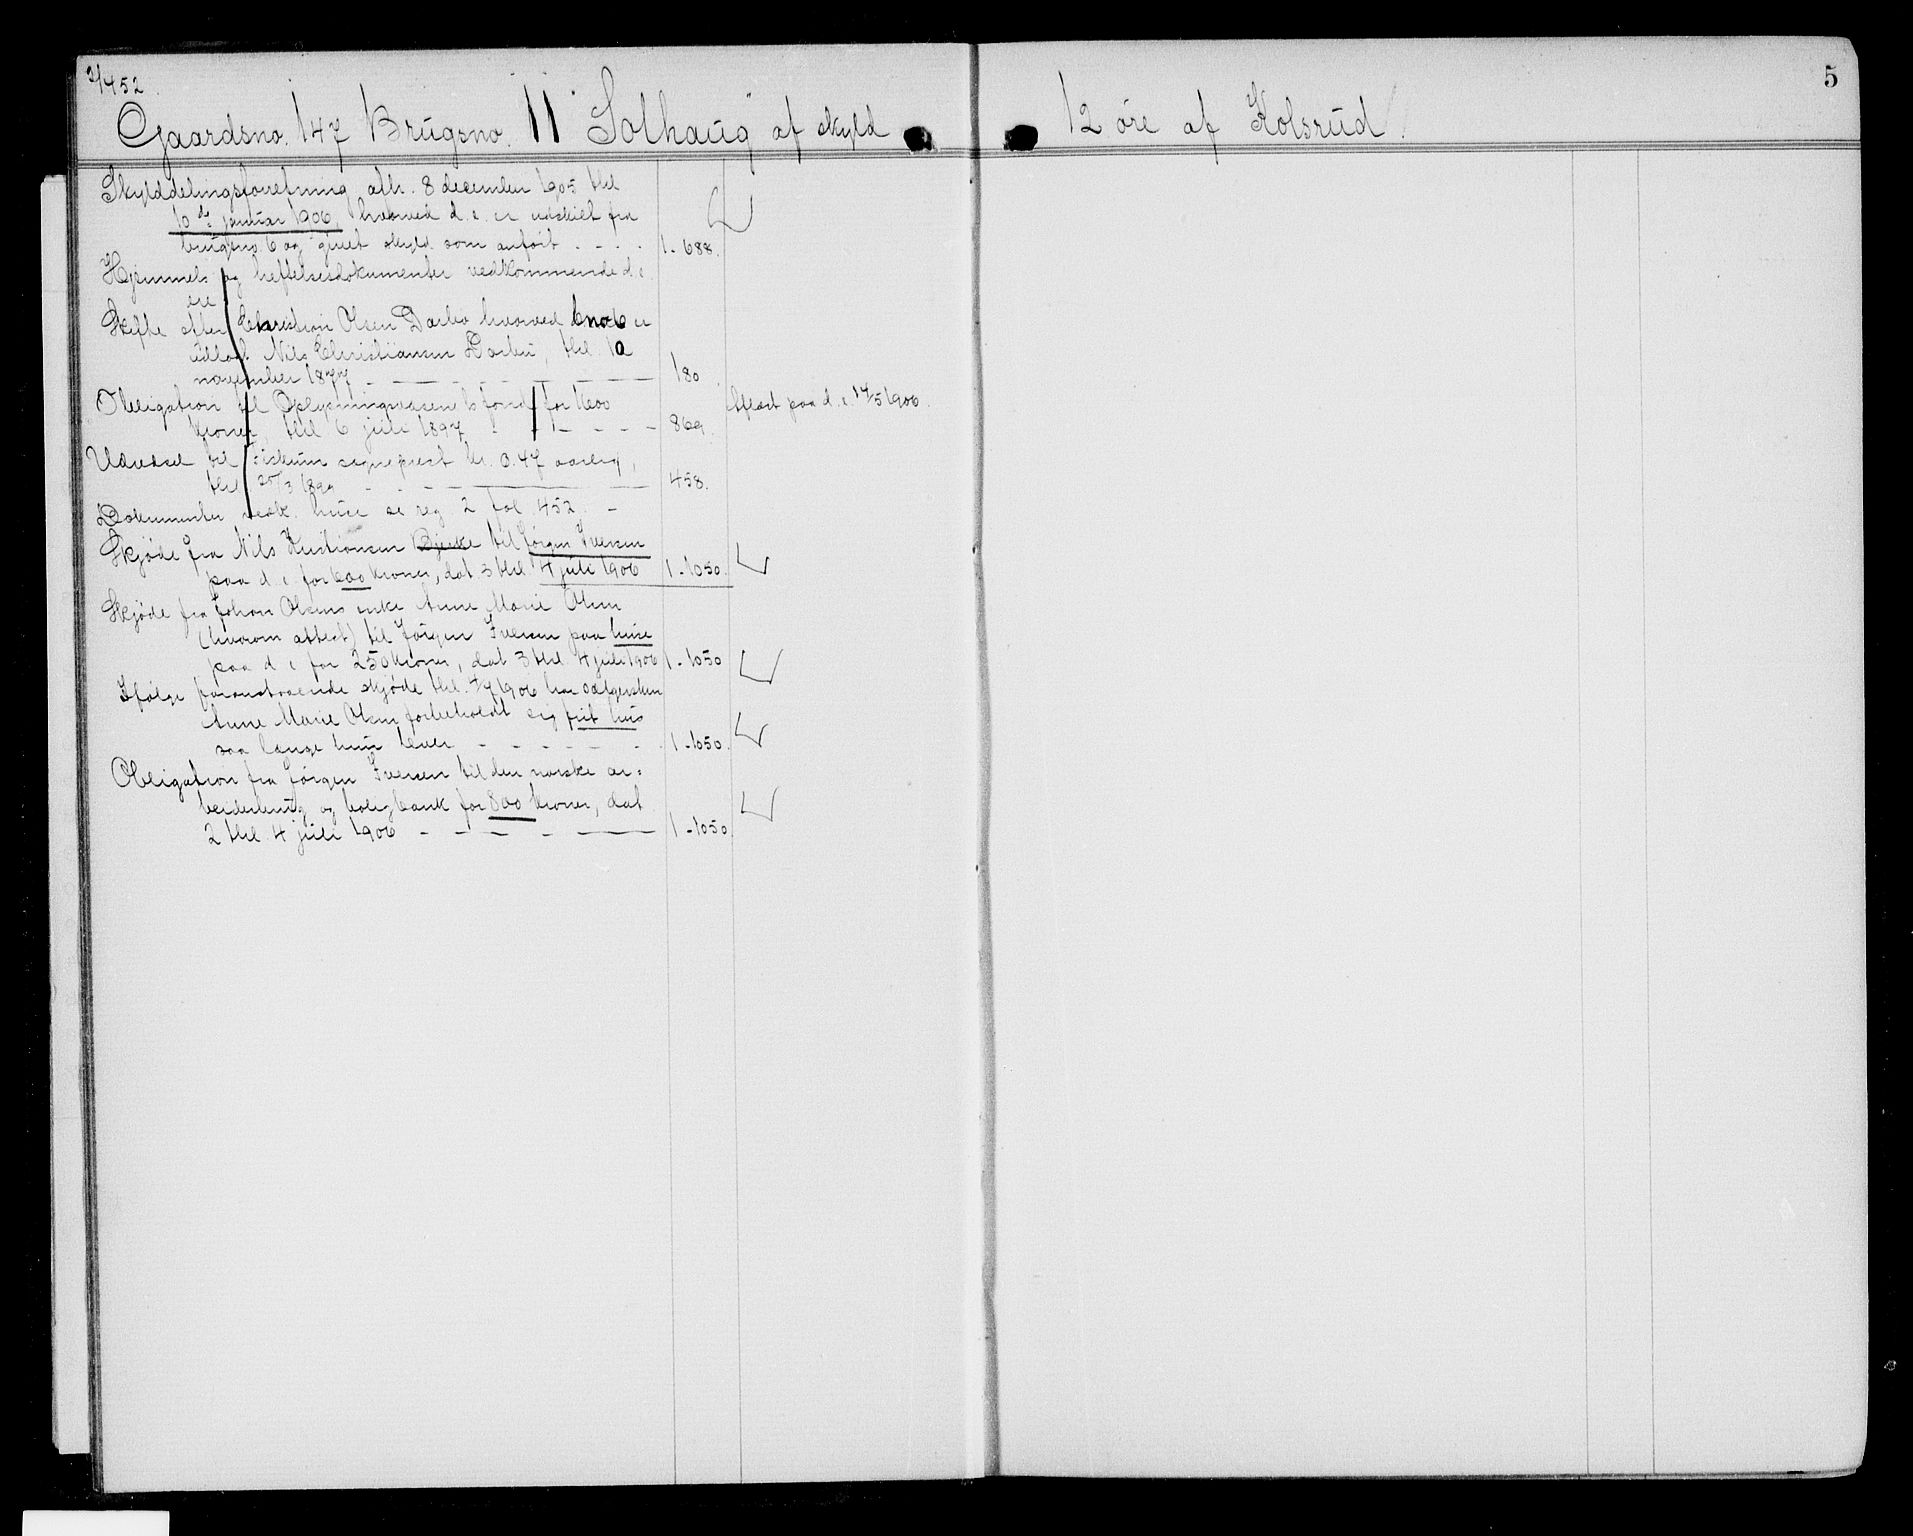 2/452.
5
Gaardsno. 147 Brugsno. 11 "Solhaug" af skyld 12 öre af Kolsrud.
Skylddelingsforretning afh. 8 december 1905 thl
6te januar 1906, hvorved d. e. er udskilt fra
brugsno. 6 og givet skyld som anfört - - - - 1-688.
Hjemmels og heftelsesdokumenter vedkommende d. e.
ere
Skifte efter Christian Olsen Darbo hvorved bno 6 er
udlagt Nils Christiansen Darbu, thl. 10
november 1877 - - - - 180.
Obligation til Oplysningsvæsenets fond for 1600
kroner, thl 6 juli 1897 - - - - 869. Aflæst paa d. e. 14/5 1906.
Udredsel til Fiskum sogneprest kr. 0.47 aarlig,
thl 25/3 1899 - - - - 458.
Dokumenter vedk. huse se reg. 2 fol. 452. -
Skjöde fra Nils Kristiansen Bjerke til Jörgen Iversen
paa d e for 600 kroner, dat 3 thl. 4 juli 1906 1-1050.
Skjöde fra Johan Olsens enke Anne Marie Olsen
(hvorom attest) til Jörgen Iversen paa huse
paa d e for 250 kroner, dat 3 thl 4 juli 1906 1-1050
Ifölge foranstaaende skjöde thl. 4/7 1906 har sælgersken
Anne Marie Olsen forbeholdt sig frit hus
saa længe hun lever - - - - - - 1-1050.
Obligation fra Jörgen Iversen til den norske ar-
beiderbrug og boligbank for 800 kroner, dat
2 thl. 4 juli 1906 - - - - 1-1050